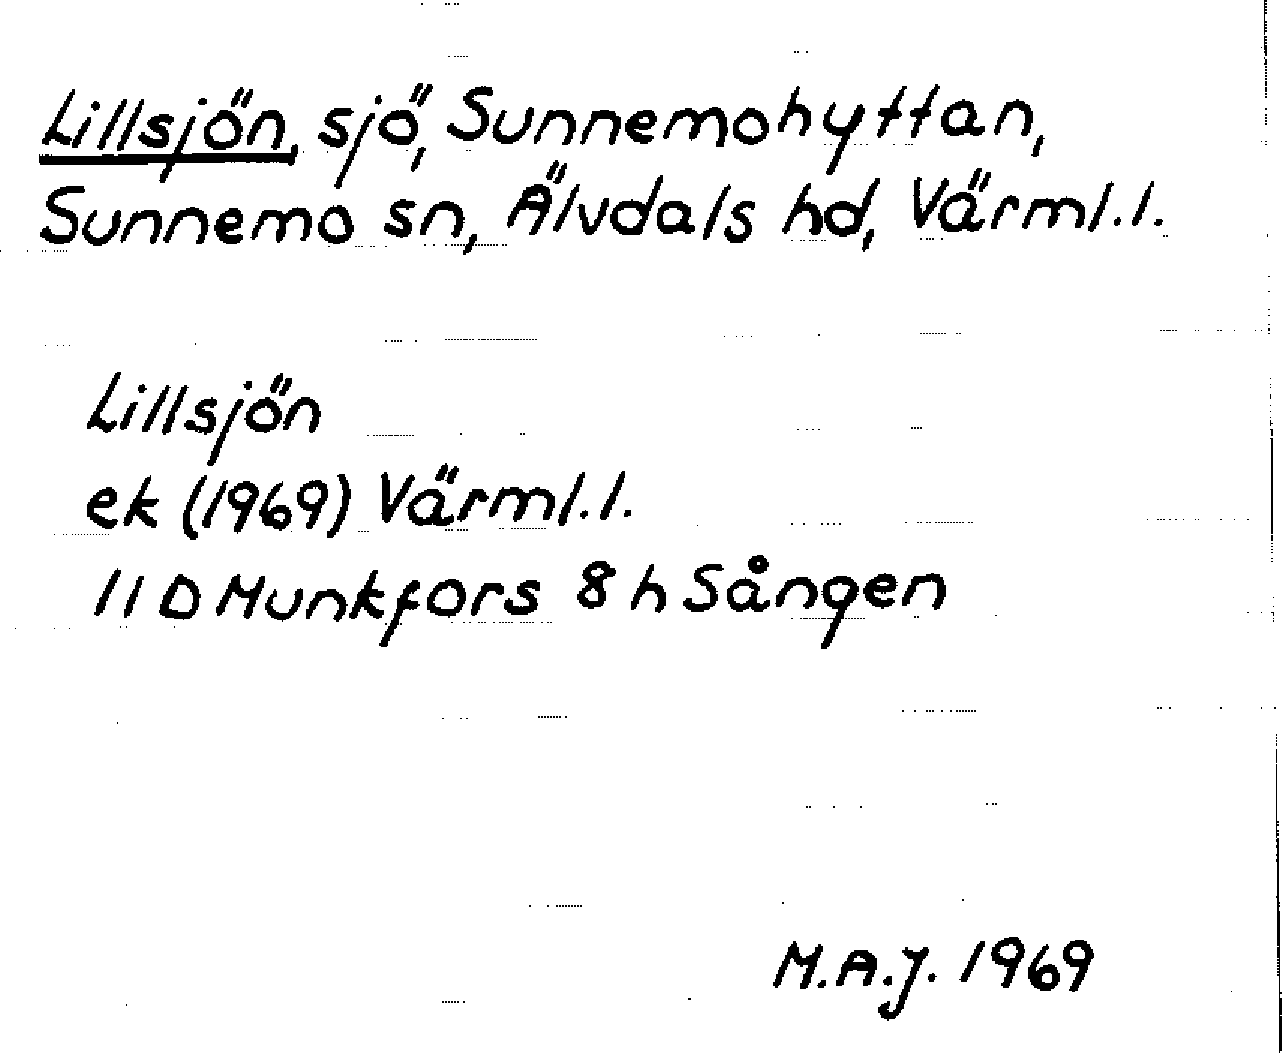 Lillsjön, sjö, Sunnemohyttan,
Sunnemo sn, Älvdals hd, Värml.l.
Lillsjön
ek (1969) Värml.l.
11 D Munkfors 8 h Sången
M.A.J. 1969